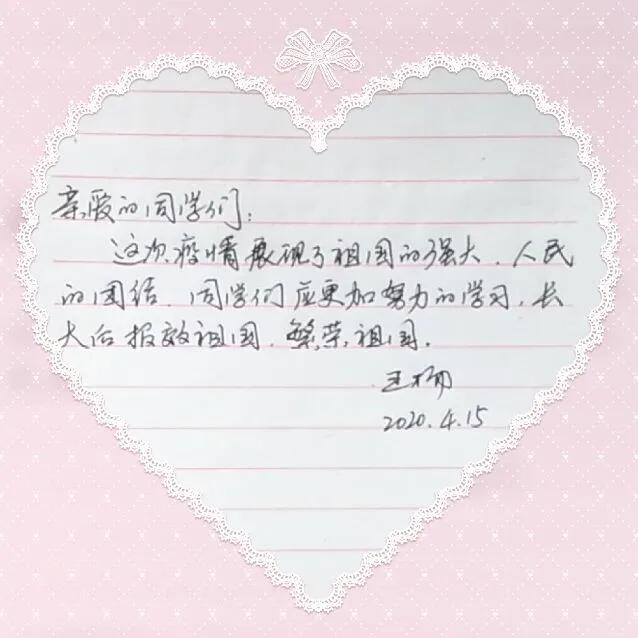 亲爱的同学们:
这次疫情展现了祖国的强大、人民
的团结、同学们应更加努力的学习,长
大后报效祖国、繁荣祖国.
王杨
2020.4.15